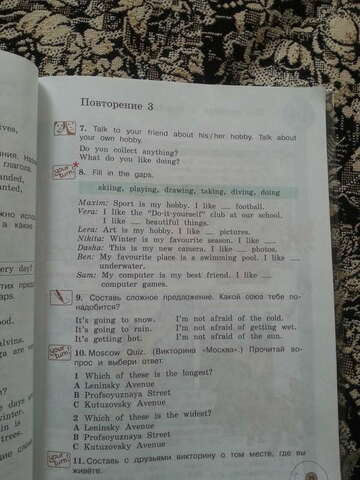 Повторение 3
7. Talk to your friend about his/her hobby. Talk about
your own hobby.
Do you collect anything?
What do you like doing?
your turn!
8. Fill in the gaps.
skiing, playing, drawing, taking, diving, doing
Maxim: Sport is my hobby. I like ... football.
Vera: I like the "Do-it-yourself" club at our school.
I like ... beautiful things.
Lera: Art is my hobby. I like ... pictures.
Nikita: Winter is my favourite season. I like ... .
Dasha: This is my new camera. I like ... photos.
Ben: My favourite place is a swimming pool. I like ...
underwater.
Sam: My computer is my best friend. I like ...
computer games.
9. Составь сложное предложение. Какой союз тебе по-
надобится?
It's going to snow. I'm not afraid of the cold.
It's going to rain. I'm not afraid of getting wet.
It's getting hot. I'm not afraid of the sun.
your turn!
10. Moscow Quiz. (Викторина «Москва».) Прочитай во-
прос и выбери ответ.
1 Which of these is the longest?
A Leninsky Avenue
B Profsoyuznaya Street
C Kutuzovsky Avenue
2 Which of these is the widest?
A Leninsky Avenue
B Profsoyuznaya Street
C Kutuzovsky Avenue
your turn!
11. Составь с друзьями викторину о том месте, где вы
живёте.